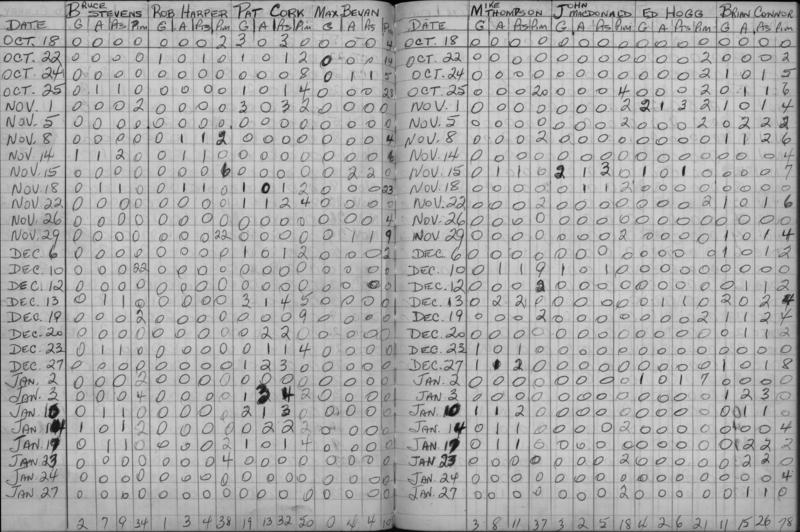 BRUCE STEVENS ROB HARPER PAT CORK MAX BEVAN
DATE G A Pts Pim G A Pts Pim G A Pts Pim G A Pts Pim
OCT. 18 0 0 0 0 0 0 0 2 3 0 3 0 0 0 0 4
OCT. 22 0 0 0 0 1 0 1 0 1 0 1 2 0 0 0
OCT. 24 0 0 0 0 0 0 0 0 0 0 0 8 0 1 1 5
OCT. 25 0 1 1 0 0 0 0 0 1 0 1 4 0 0 0 23
NOV. 1 0 0 0 2 0 0 0 0 3 0 3 2 0 0 0
NOV. 5 0 0 0 0 0 0 0 0 0 0 0 0 0 0 0
NOV. 8 0 0 0 0 0 1 1 2 0 0 0 0 0 0 0 4
NOV. 14 1 1 2 0 0 1 1 0 0 0 0 0 0 0 0 6
NOV. 15 0 0 0 0 0 0 0 6 0 0 0 0 0 2 2 0
NOV. 18 0 1 1 0 0 1 1 0 1 0 1 2 0 0 0 23
NOV. 22 0 0 0 0 0 0 0 0 1 1 2 4 0 0 0
NOV. 26 0 0 0 0 0 0 0 0 0 0 0 0 0 0 0 4
NOV. 29 0 0 0 0 0 0 0 22 0 0 0 0 0 1 1 9
DEC. 6 0 0 0 0 0 0 0 0 1 0 1 2 0 0 0 2
DEC. 10 0 0 0 22 0 0 0 0 0 0 0 0 0 0 0
DEC. 12 0 0 0 0 0 0 0 0 0 0 0 0 0 0 0
DEC. 13 0 1 1 0 0 0 0 0 3 1 4 5 0 0 0
DEC. 19 0 0 0 2 0 0 0 0 0 0 0 9 0 0 0
DEC. 20 0 0 0 0 0 0 0 0 0 2 2 0 0 0 0
DEC. 23 0 1 1 0 0 0 0 0 0 1 1 4 0 0 0
DEC. 27 0 0 0 0 0 0 0 0 1 2 3 0 0 0 0
JAN. 2 0 0 0 2 0 0 0 0 0 0 0 0 0 0 0
JAN. 3 0 0 0 4 0 0 0 0 1 3 4 2 0 0 0
JAN. 10 0 1 1 0 0 0 0 0 2 1 3 0 0 0 0
JAN. 14 1 0 1 2 0 0 0 0 0 2 2 2 0 0 0
JAN. 17 0 1 1 0 0 0 0 2 1 0 1 4 0 0 0
JAN 23 0 0 0 0 0 0 0 4 0 0 0 0 0 0 0
JAN. 24 0 0 0 0 0 0 0 0 0 0 0 0 0 0 0
JAN 27 0 0 0 0 0 0 0 0 0 0 0 0 0 0 0
2 7 9 34 1 3 4 38 19 13 32 50 0 4 4
MIKE THOMPSON JOHN MACDONALD ED HOGG BRIAN CONNOR
DATE G A Pts Pim G A Pts Pim G A Pts Pim G A Pts Pim
OCT. 18 0 0 0 0 0 0 0 0 0 0 0 0 0 0 0 0
OCT. 22 0 0 0 0 0 0 0 0 0 0 0 2 0 0 0 2
OCT. 24 0 0 0 0 0 0 0 0 0 0 0 2 1 0 1 5
OCT. 25 0 0 0 20 0 0 0 4 0 0 0 2 0 1 1 6
NOV. 1 0 0 0 0 0 0 0 2 2 1 3 2 1 0 1 4
NOV. 5 0 0 0 0 0 0 0 2 0 0 0 2 0 2 2 2
NOV. 8 0 0 0 2 0 0 0 0 0 0 0 0 1 1 2 6
NOV. 14 0 0 0 0 0 0 0 0 0 0 0 0 0 0 0 4
NOV. 15 0 1 1 0 2 1 3 0 1 0 1 0 0 0 0 7
NOV. 18 0 0 0 0 0 1 1 2 0 0 0 0 0 0 0 0
NOV. 22 0 0 0 2 0 0 0 0 0 0 0 2 1 0 1 6
NOV. 26 0 0 0 0 0 0 0 0 0 0 0 0 0 0 0 0
NOV 29 0 0 0 0 0 0 0 2 0 0 0 0 1 0 1 4
DEC. 6 0 0 0 0 0 0 0 0 0 0 0 0 1 0 1 2
DEC. 10 0 1 1 9 1 0 1 0 0 0 0 0 0 0 0 0
DEC. 12 0 0 0 2 0 0 0 0 0 0 0 0 0 1 1 2
DEC. 13 0 2 2 0 0 0 0 0 0 1 1 0 2 0 2 4
DEC. 19 0 0 0 2 0 0 0 0 0 0 0 2 1 1 2 4
DEC. 20 0 0 0 0 0 0 0 0 0 0 0 0 0 1 1 2
DEC. 23 1 0 1 0 0 0 0 0 0 0 0 0 0 0 0 0
DEC. 27 1 1 2 0 0 0 0 0 0 0 0 0 1 0 1 8
JAN. 2 0 0 0 0 0 0 0 0 1 0 1 7 0 0 0 0
JAN 3 0 0 0 0 0 0 0 0 0 0 0 0 1 2 3 0
JAN. 10 1 1 2 0 0 0 0 0 0 0 0 0 0 1 1 0
JAN. 14 0 1 1 0 0 0 0 2 0 0 0 0 0 0 0 4
JAN. 17 0 1 1 0 0 0 0 0 0 0 0 0 0 2 2 2
JAN 23 0 0 0 0 0 0 0 2 0 0 0 0 0 2 2 0
JAN. 24 0 0 0 0 0 0 0 0 0 0 0 0 0 0 0 4
JAN. 27 0 0 0 0 0 0 0 2 0 0 0 0 0 1 1 0
3 8 11 37 3 2 5 18 4 2 6 21 11 15 26 78